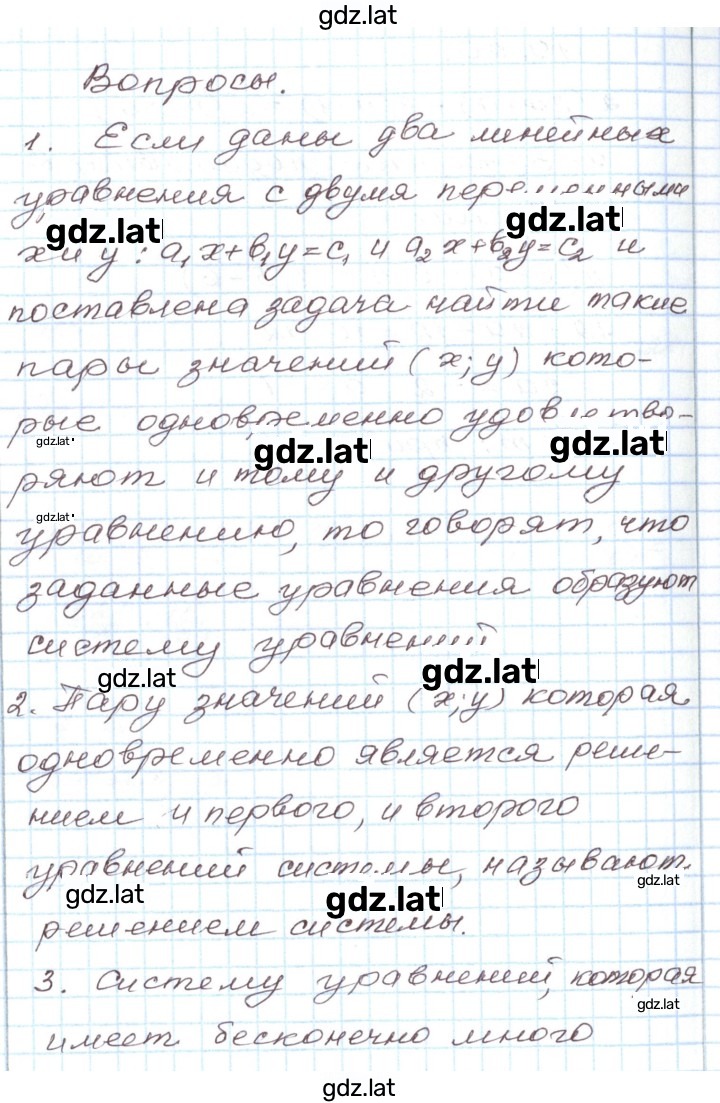 gdz.lat
Вопросы.
1. Если даны два линейных
уравнения с двумя переменными
gdz.lat gdz.lat
x и y: a₁x+b₁y=c₁ и a₂x+b₂y=c₂ и
поставлена задача найти такие
пары значений (x; y) кото-
рые одновременно удовлетво-
gdz.lat gdz.lat gdz.lat
ряют и тому и другому
gdz.lat
уравнению, то говорят, что
заданные уравнения образуют
систему уравнений
gdz.lat gdz.lat
2. Пару значений (x; y) которая
одновременно является реше-
нием и первого, и второго
уравнений системы, называют
gdz.lat gdz.lat gdz.lat
решением системы.
3. Систему уравнений, которая
gdz.lat
имеет бесконечно много
gdz.lat